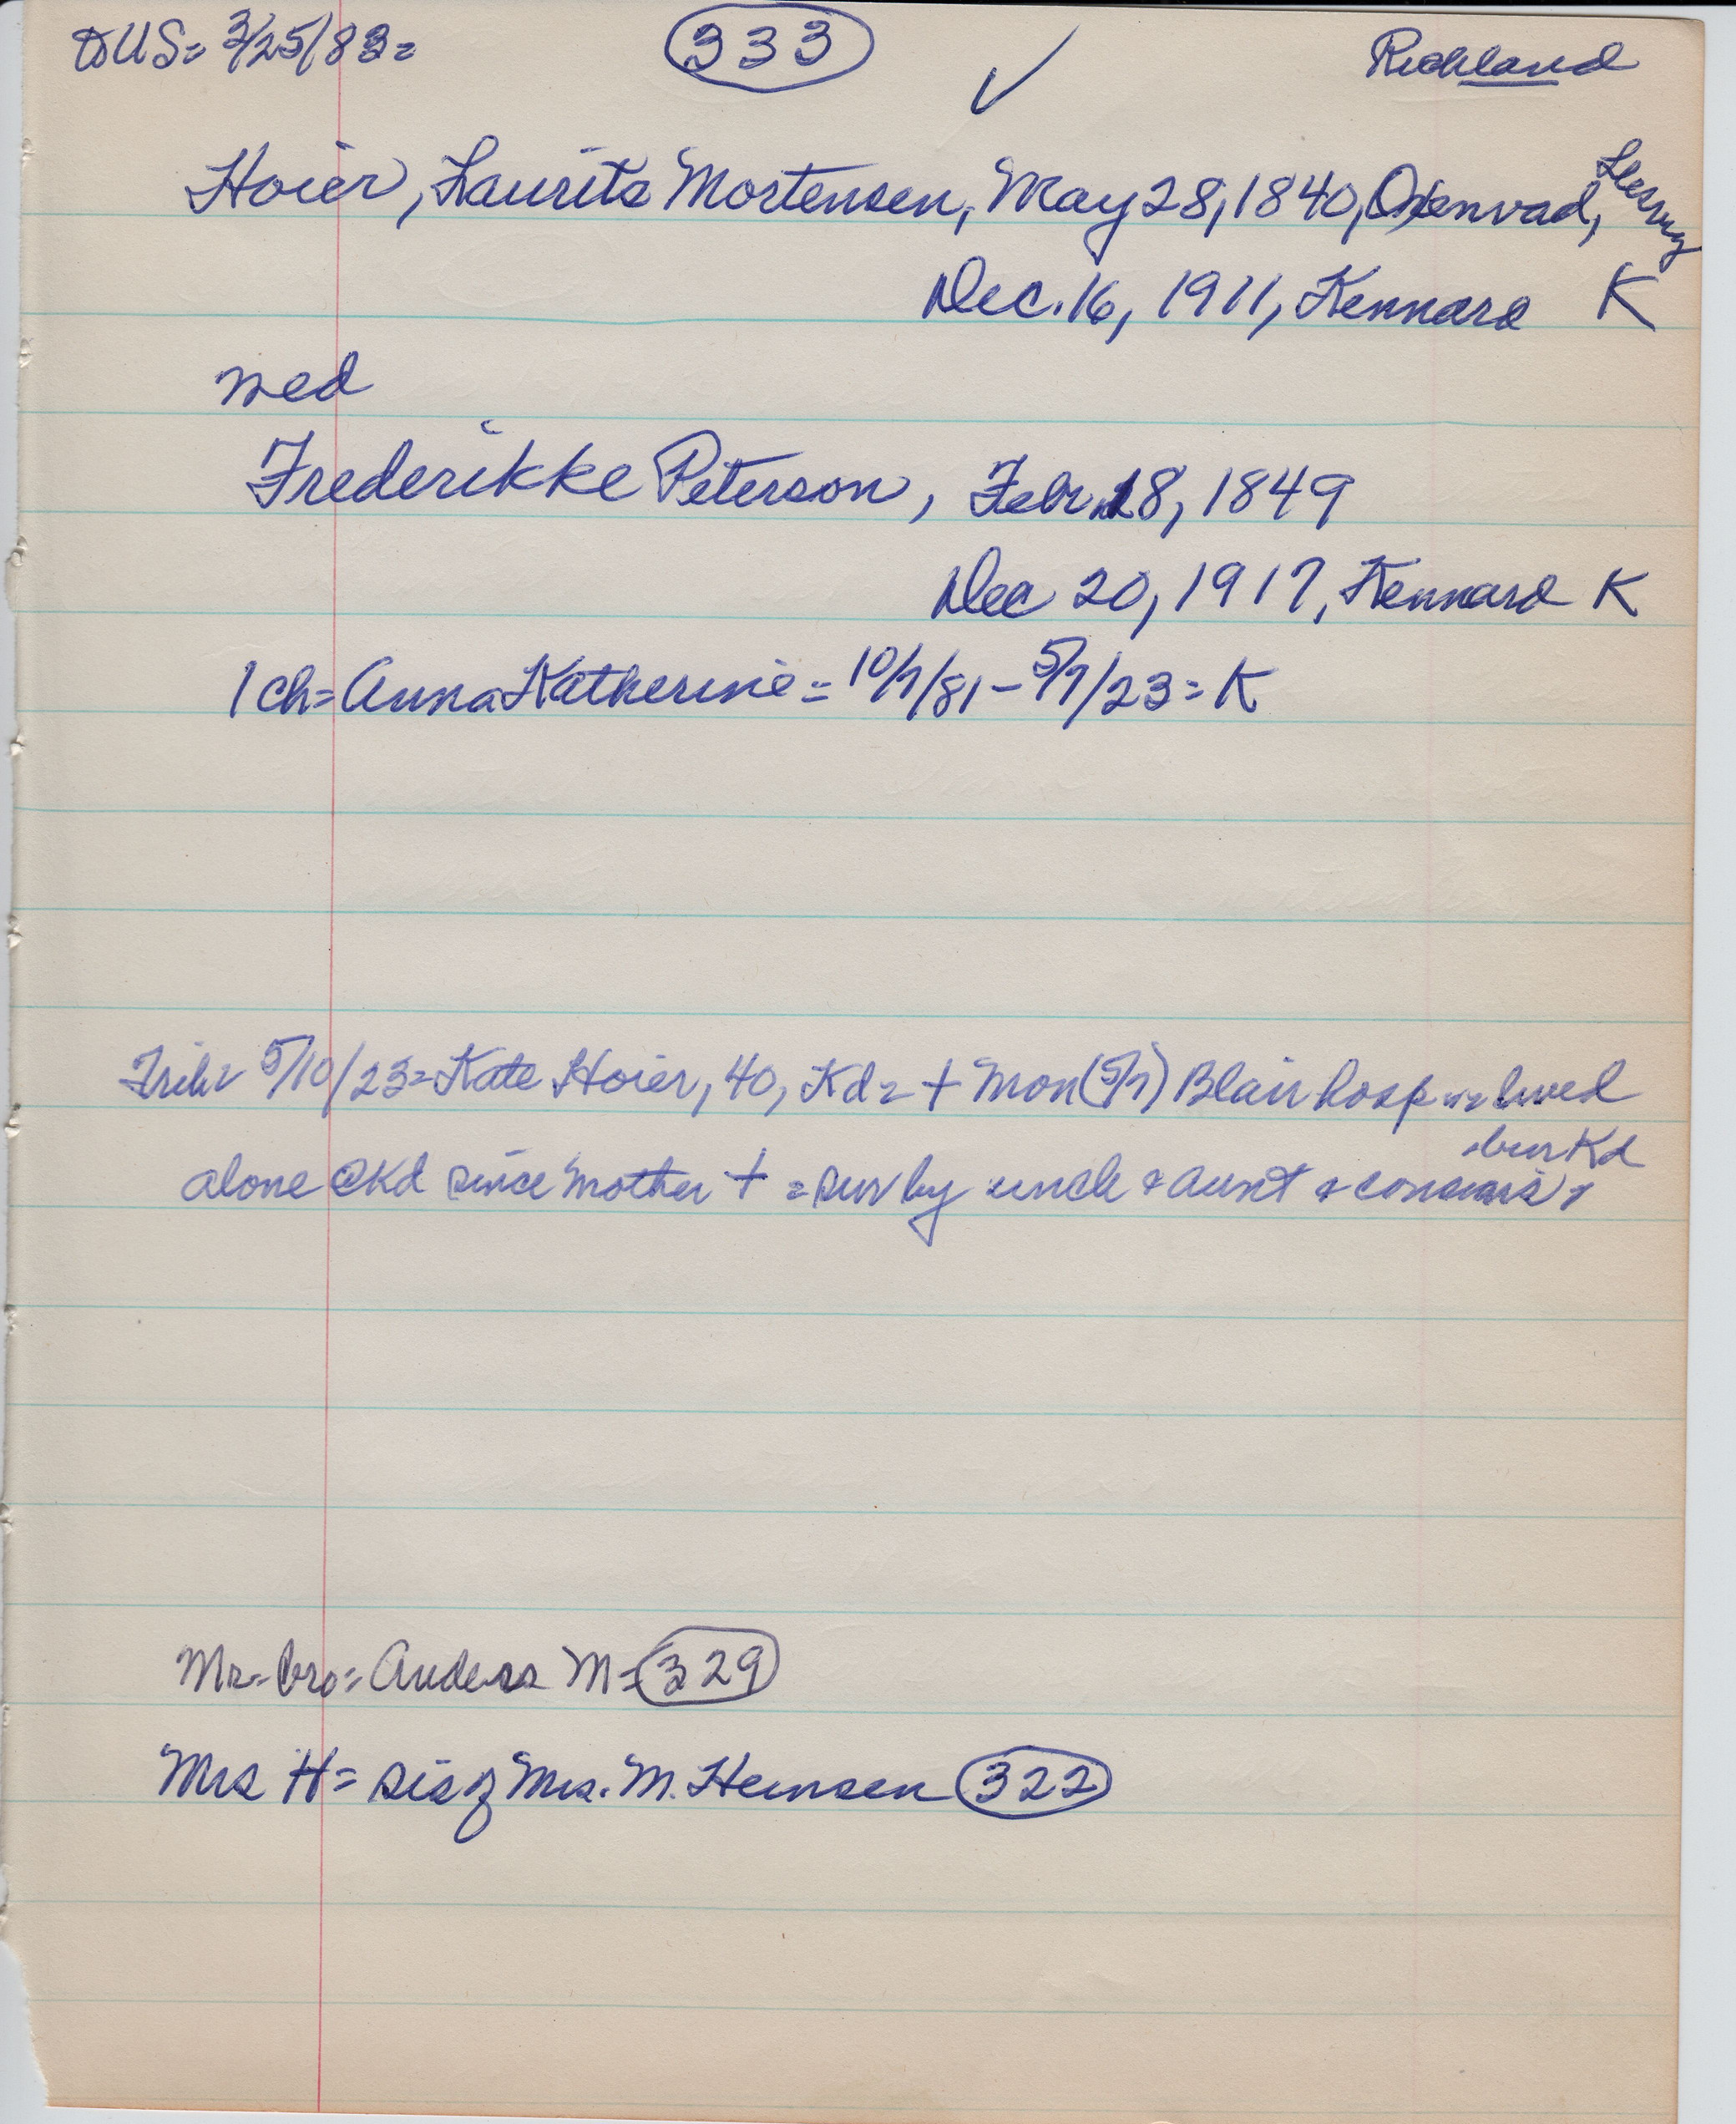 to US = 3/25/83 =
333
✓
Richland
Hoier, Laurits Mortensen, May 28, 1840, Oxenvad,
Dec. 16, 1911, Kennard K
med
Frederikke Peterson, Febr. 18, 1849
Dec 20, 1917, Kennard K
1 ch = Anna Katherine = 10/7/81 – 5/7/23 = K
Trib = 5/10/23 = Kate Hoier, 40, Kd = + Mon (5/7) Blair hosp = lived
alone @ Kd since mother + = sur by uncle & aunt & cousins
bur Kd
Mr = bro = Anders M = 329
Mrs H = sis of Mrs. M. 322